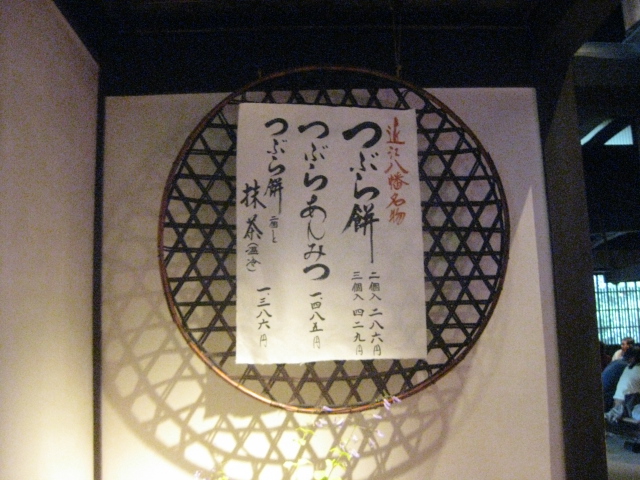 近江八幡名物
つぶら餅
二個入 二八六円
三個入 四二九円
つぶらあんみつ
一、四八五円
つぶら餅 二個と
抹茶(温・冷)
一三八六円